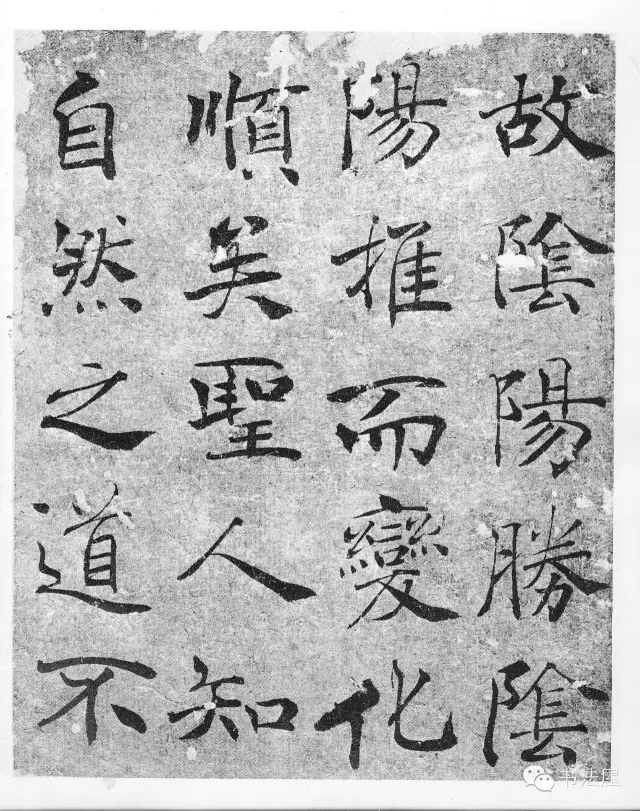 故陰陽勝陰
陽推而變化
順矣聖人知
自然之道不
书法屋